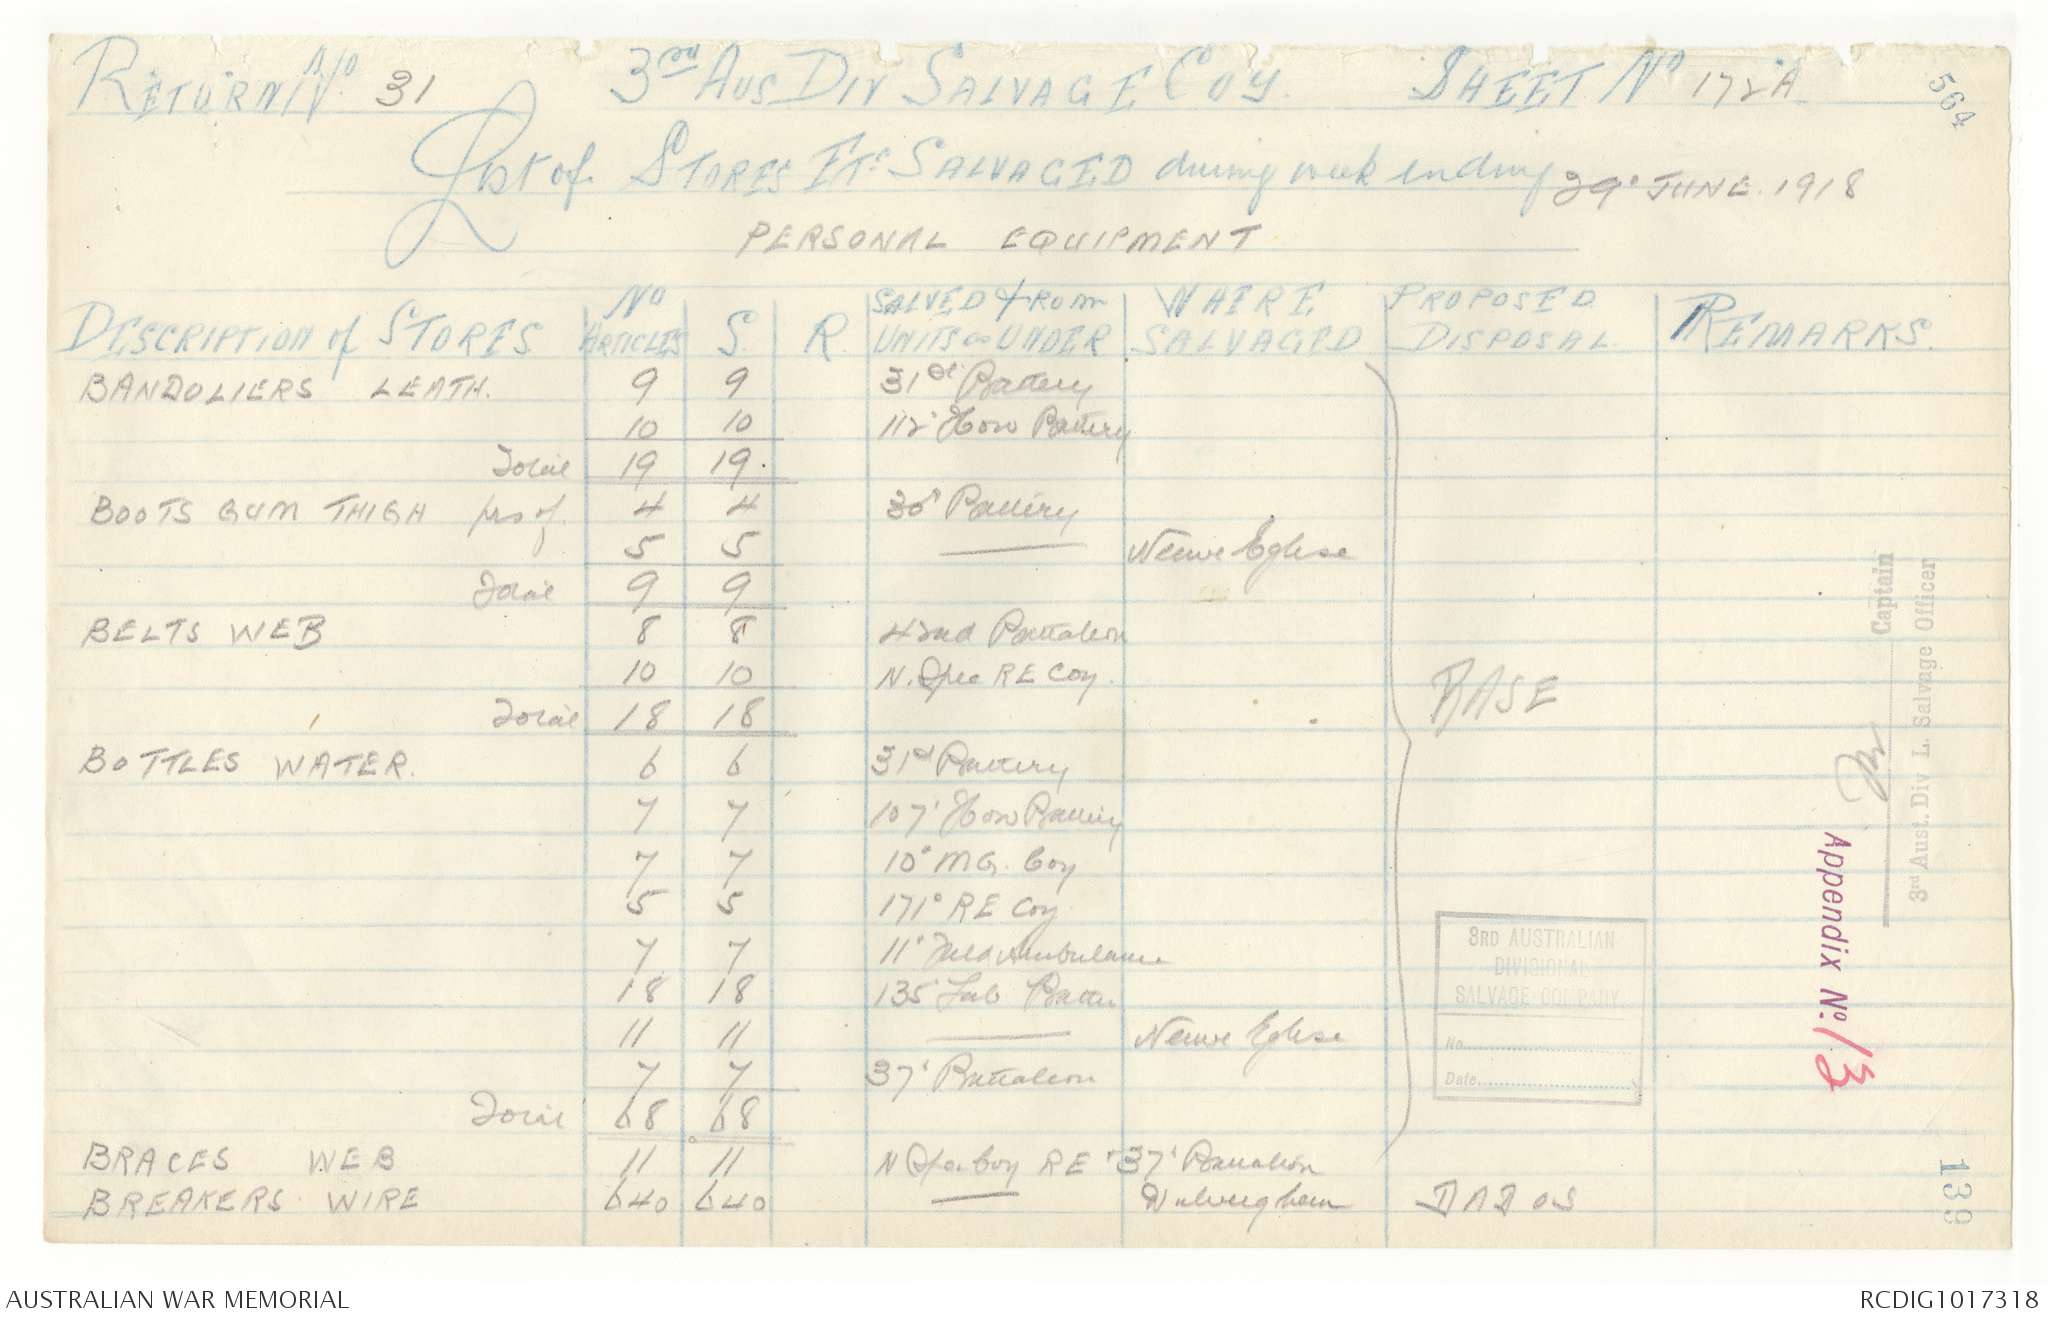 RETURN No. 31 3rd AUS DIV SALVAGE COY. SHEET No 172A
564
List of STORES Etc SALVAGED during week ending 29° JUNE. 1918
PERSONAL EQUIPMENT
DESCRIPTION of STORES No ARTICLES S. R. SALVED FROM UNITS or UNDER WHERE SALVAGED PROPOSED DISPOSAL. REMARKS.
BANDOLIERS LEATH. 9 9 31st Battery
10 10 112' How Battery
Total 19 19.
BOOTS GUM THIGH prs of. 4 4 30' Battery
5 5 —— Neuve Eglise
Total 9 9
BELTS WEB 8 8 42nd Battalion
10 10 N. Spec RE Coy.
Total 18 18 BASE
BOTTLES WATER. 6 6 31st Battery
7 7 107' How Battery
7 7 10° MG. Coy
5 5 171° RE Coy
7 7 11° Field Ambulance
18 18 135'
11 11 —— Neuve Eglise
7 7 37' Battalion
Total 68 68
BRACES WEB 11 11 N Spec Coy RE + 37' Battalion
BREAKERS WIRE 640 640 ——
3RD AUSTRALIAN
DIVISIONAL
SALVAGE COMPANY
No.
Date
Captain
3rd Aust. Div L. Salvage Officer
Appendix No. 13
139
AUSTRALIAN WAR MEMORIAL
RCDIG1017318